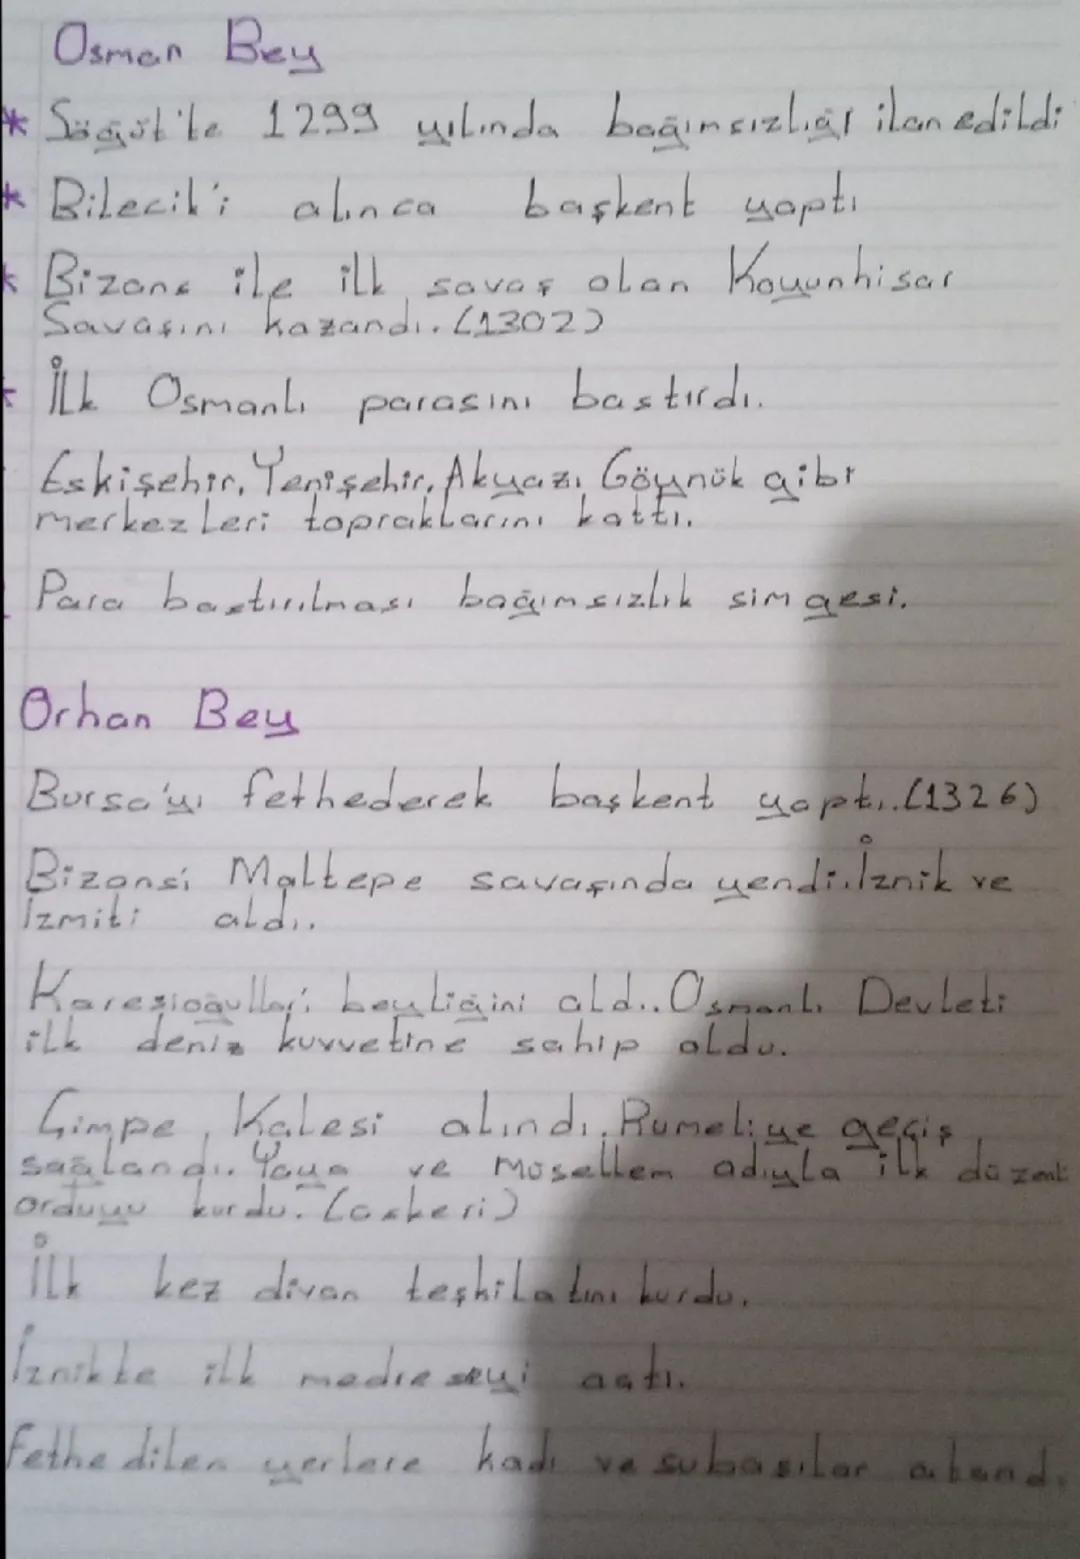 Osman Bey
* Söğüt'te 1299 yılında bağımsızlığı ilan edildi
* Bilecik'i alınca başkent yaptı
* Bizans ile ilk savaş olan Koyunhisar
Savaşını kazandı. (1302)
* İlk Osmanlı parasını bastırdı.
Eskişehir, Yenişehir, Akyazı, Göynük gibi
merkezleri topraklarını kattı.
Para bastırılması bağımsızlık simgesi.
Orhan Bey
Bursa'yı fethederek başkent yaptı. (1326)
Bizansi Maltepe savaşında yendi. İznik ve
İzmiti aldı.
Karesioğulları beyliğini aldı. Osmanlı Devleti
ilk deniz kuvvetine sahip oldu.
Çimpe Kalesi alındı. Rumeliye geçiş
sağlandı. Yaya ve Müsellem adıyla ilk düzenli
orduyu kurdu. (askeri)
İlk kez divan teşkilatını kurdu.
İznikte ilk medreseyi açtı.
Fethedilen yerlere kadı ve subaşılar atandı